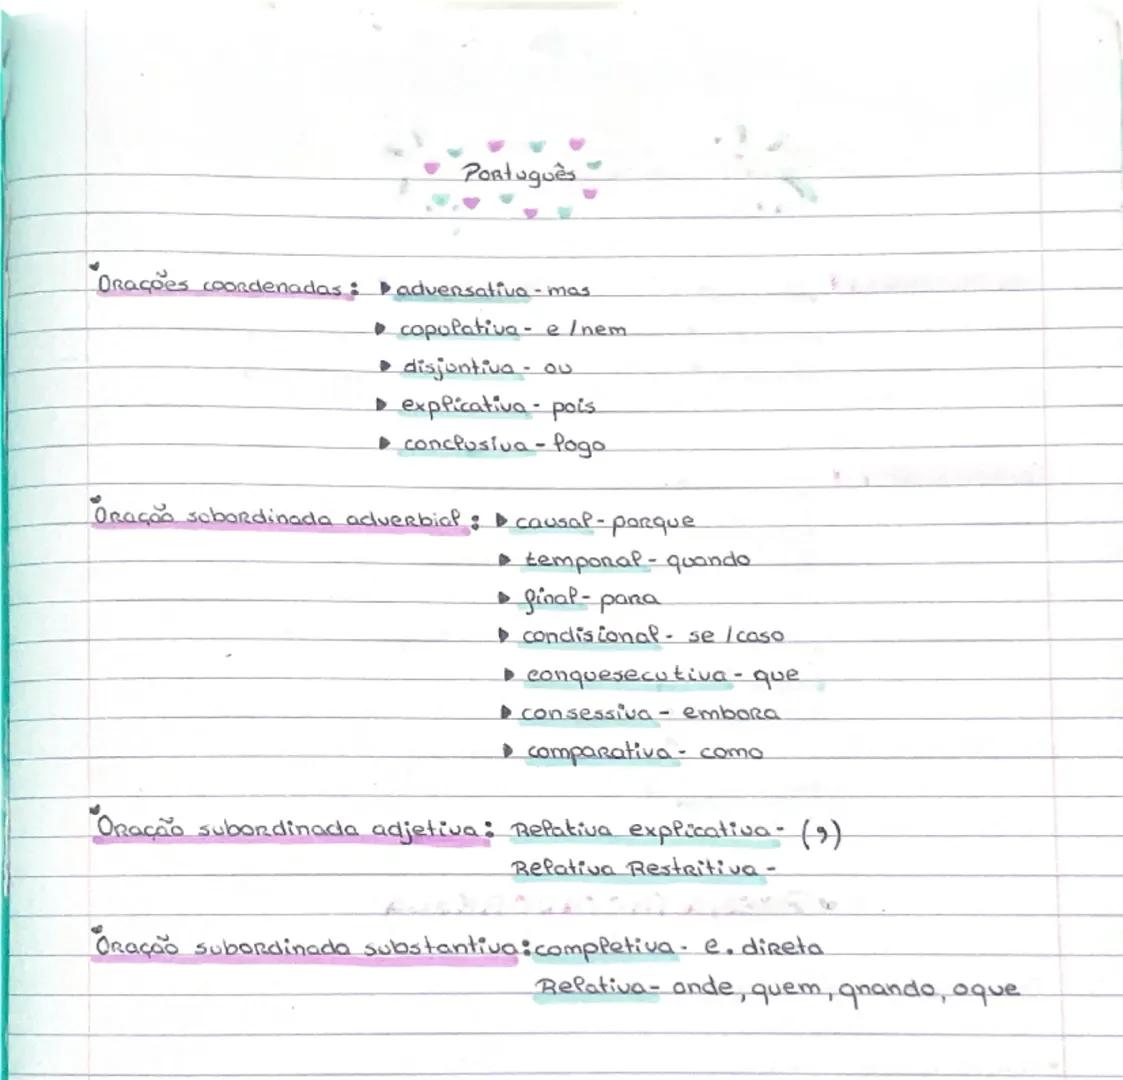 Português
Orações coordenadas: ▶ adversativa - mas
▶ copulativa - e / nem
▶ disjuntiva - ou
▶ explicativa - pois
▶ conclusiva - logo
Oração subordinada adverbial: ▶ causal - porque
▶ temporal - quando
▶ final - para
▶ condisional - se / caso
▶ conquesecutiva - que
▶ consessiva - embora
▶ comparativa - como
Oração subordinada adjetiva: Relativa explicativa - (,)
Relativa Restritiva -
Oração subordinada substantiva: completiva - c. direta
Relativa - onde, quem, qnando, oque